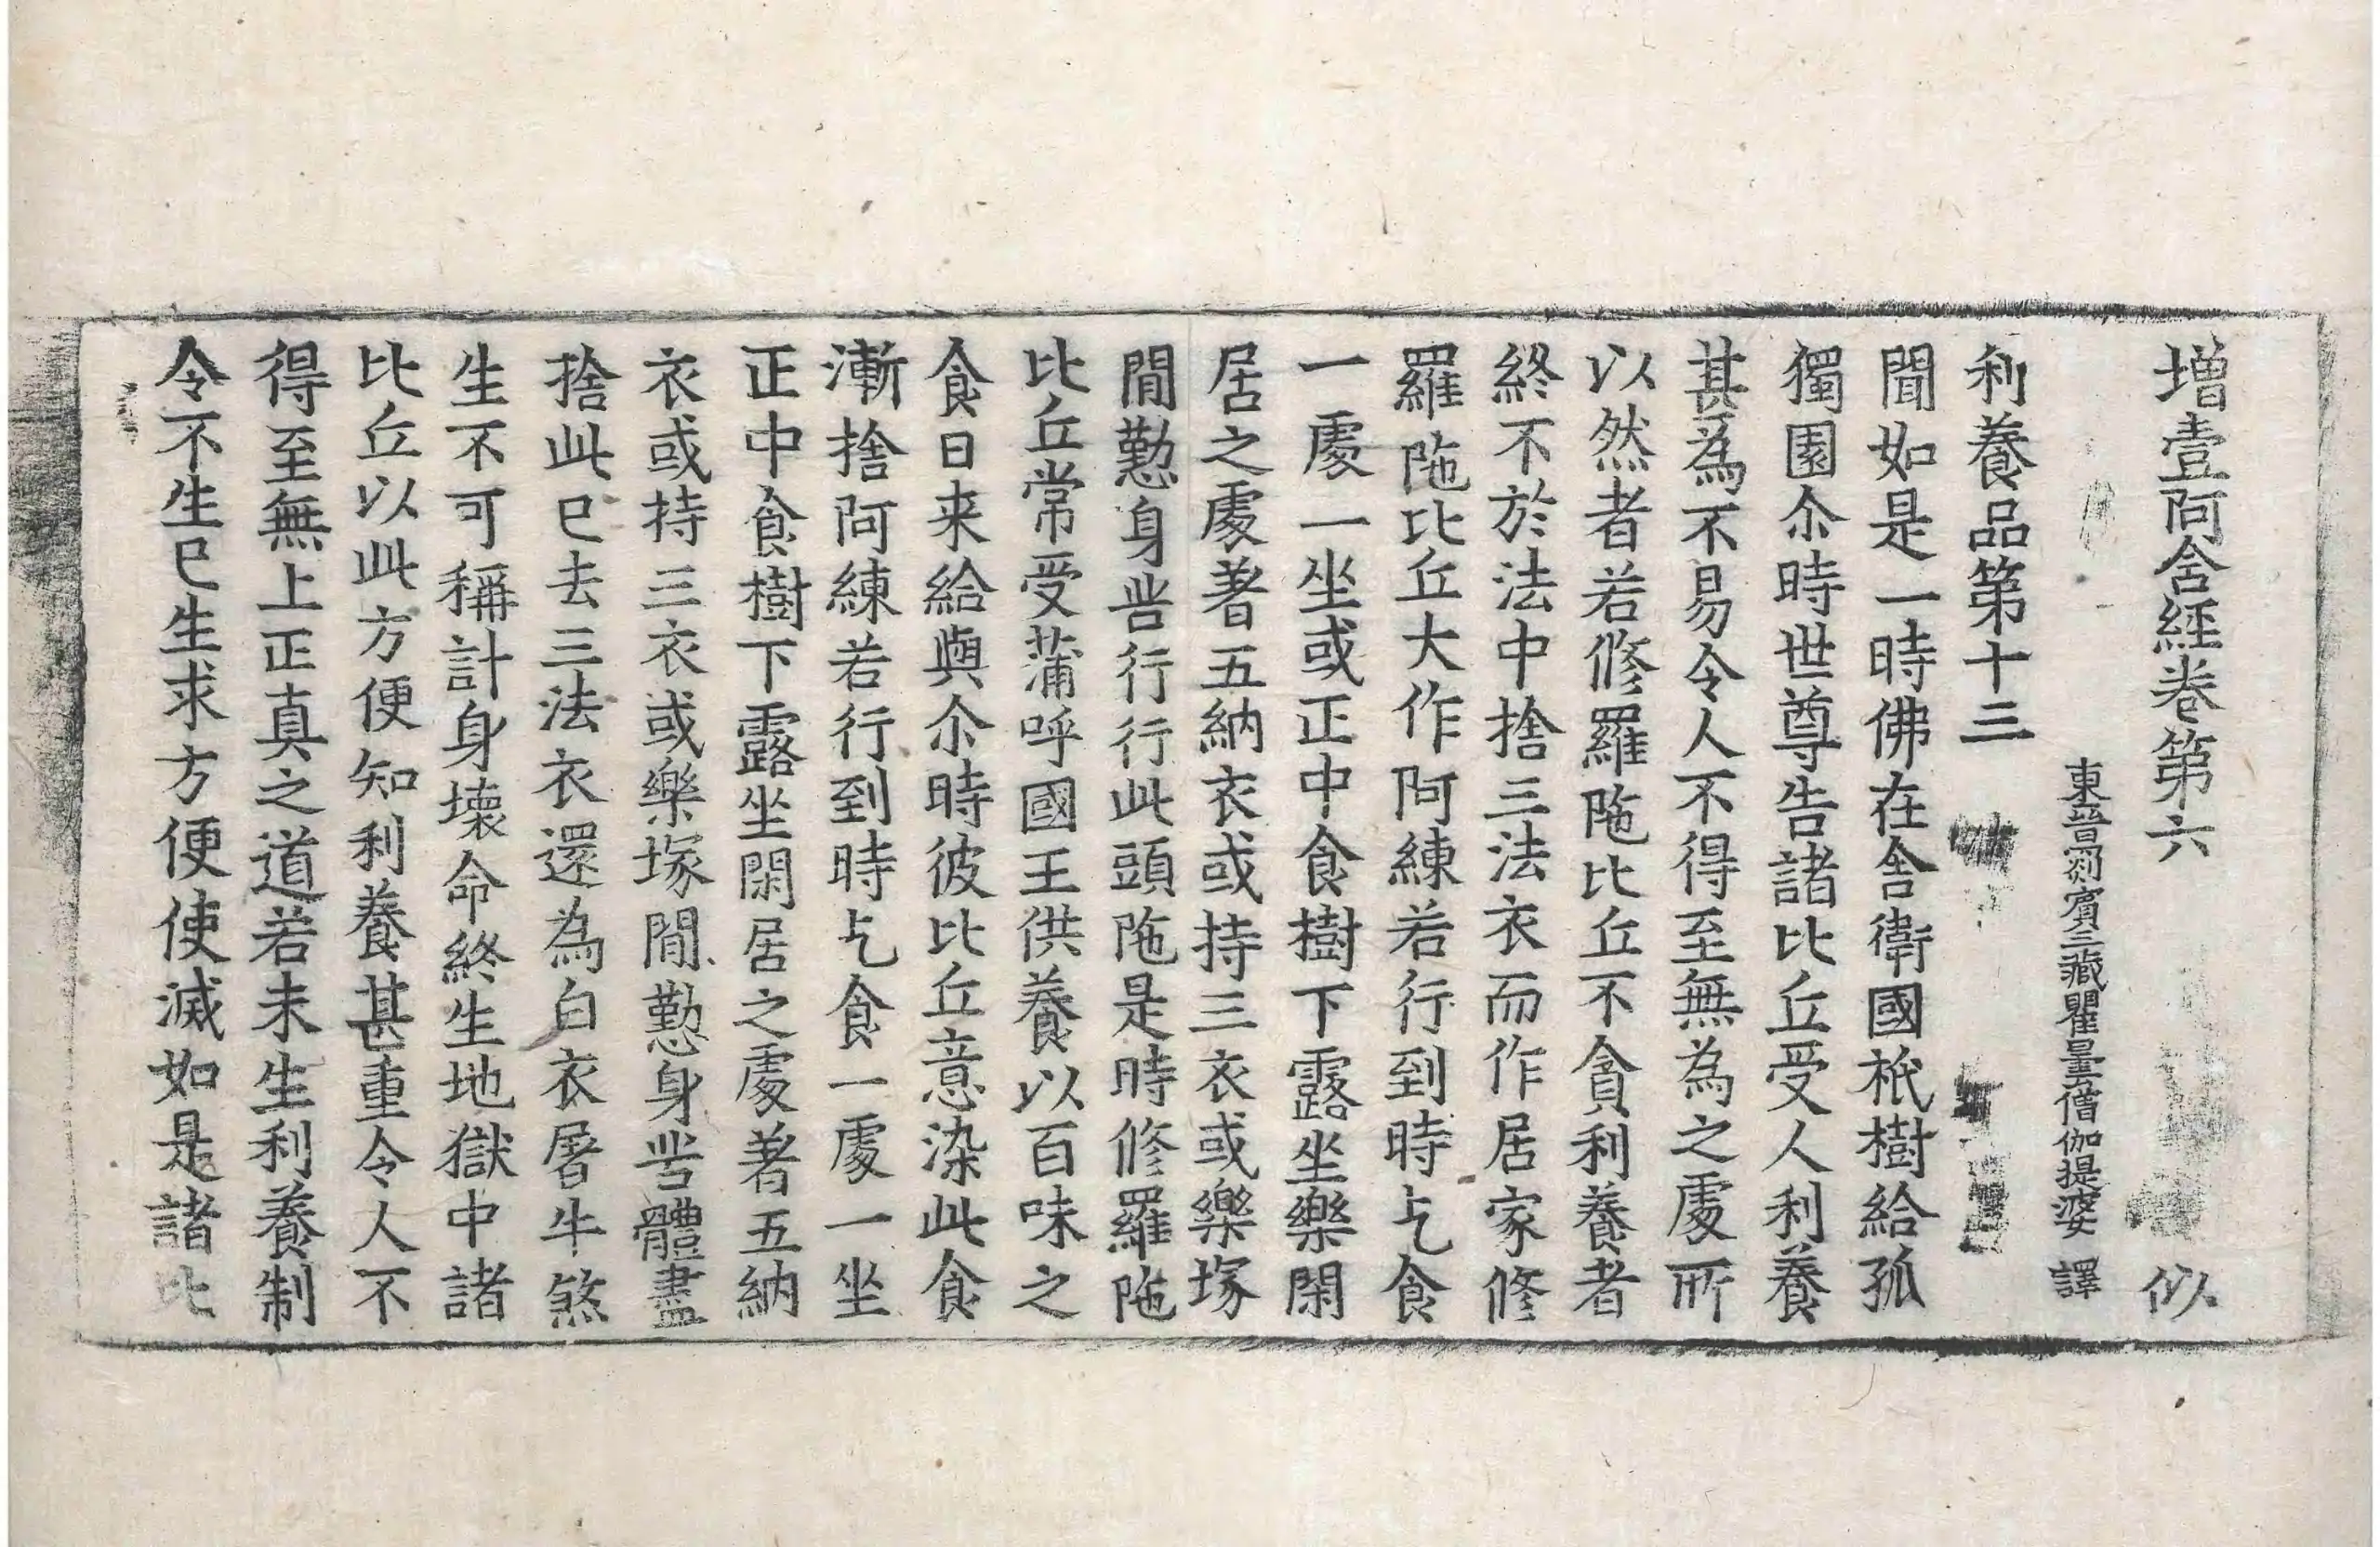 增壹阿含經卷第六　似
東晉罽賓三藏瞿曇僧伽提婆　譯
利養品第十三
聞如是一時佛在舍衛國祇樹給孤
獨園尒時世尊告諸比丘受人利養
甚為不易令人不得至無為之處所
以然者若修羅陁比丘不貪利養者
終不於法中捨三法衣而作居家修
羅陁比丘大作阿練若行到時乞食
一處一坐或正中食樹下露坐樂閑
居之處著五納衣或持三衣或樂塚
閒懃身苦行行此頭陁是時修羅陁
比丘常受蒲呼國王供養以百味之
食日来給與尒時彼比丘意染此食
漸捨阿練若行到時乞食一處一坐
正中食樹下露坐閑居之處著五納
衣或持三衣或樂塚閒懃身苦體盡
捨此已去三法衣還為白衣屠牛煞
生不可稱計身壞命終生地獄中諸
比丘以此方便知利養甚重令人不
得至無上正真之道若未生利養制
令不生已生求方便使滅如是諸比